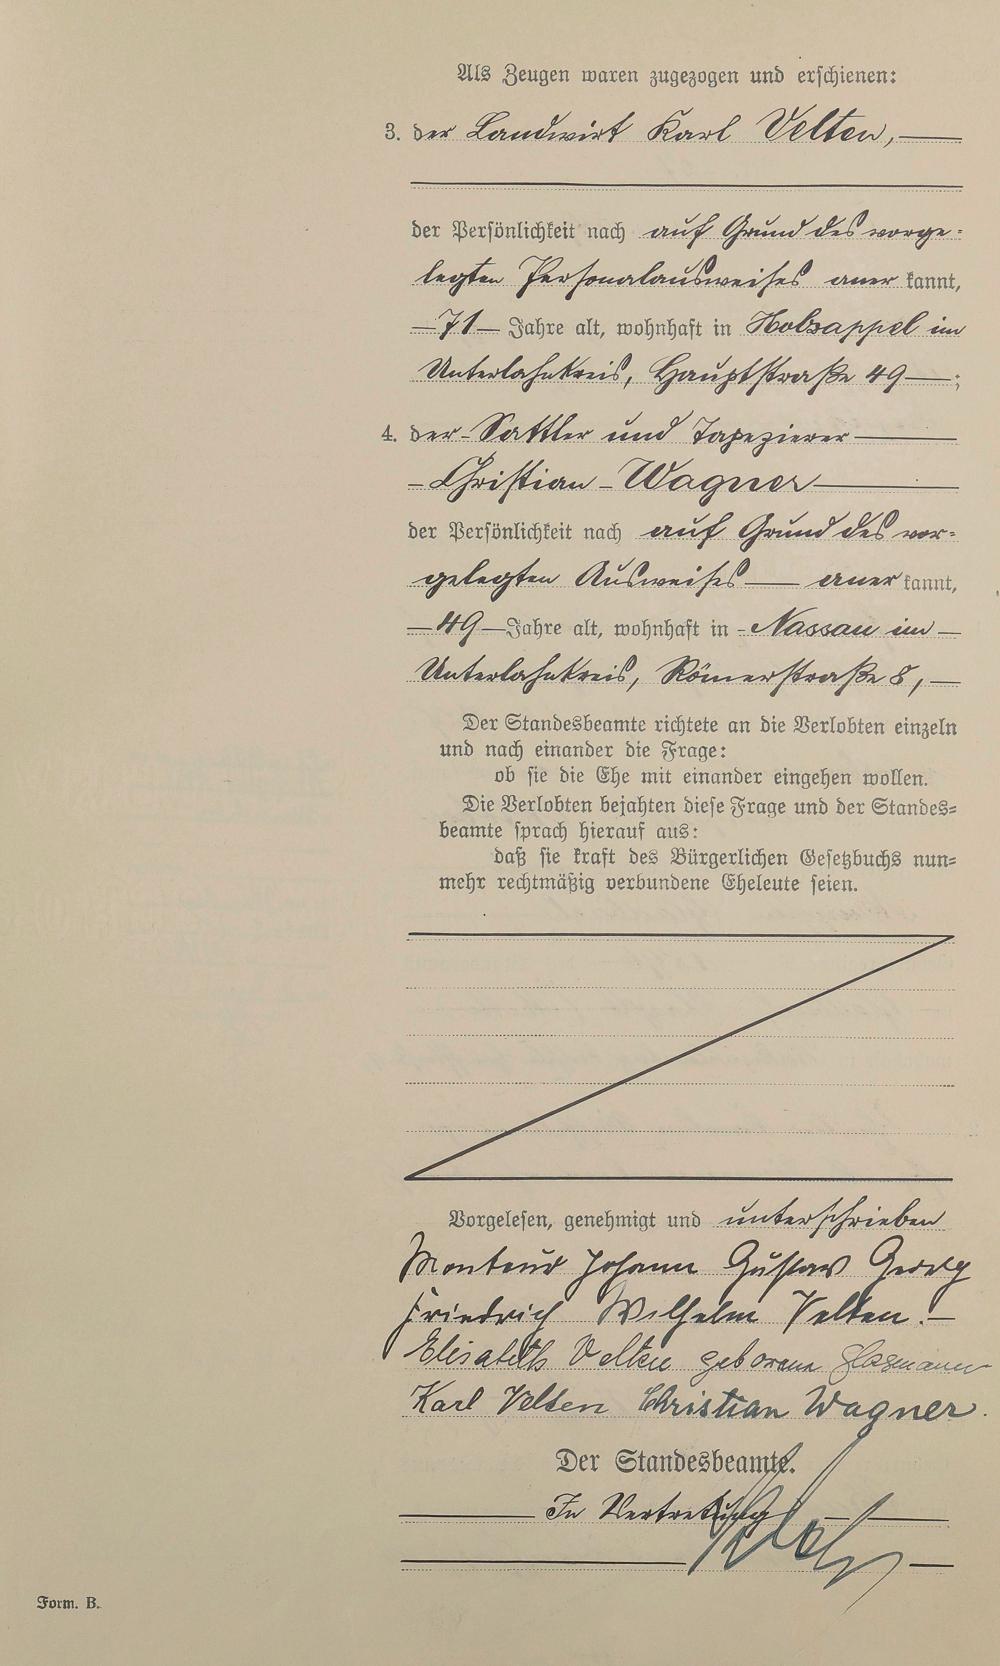 Als Zeugen waren zugezogen und erschienen:
3. der Landwirt Karl Velten,
der Persönlichkeit nach auf Grund des vorge-
legten Personalausweises aner kannt,
71 Jahre alt, wohnhaft in Holzappel im
Unterlahnkreis, Hauptstraße 49 ;
4. der Sattler und Tapezierer
Christian Wagner
der Persönlichkeit nach auf Grund des vor-
gelegten Ausweises aner kannt,
49 Jahre alt, wohnhaft in Nassau im
Unterlahnkreis, Römerstraße 8,
Der Standesbeamte richtete an die Verlobten einzeln
und nach einander die Frage:
ob sie die Ehe mit einander eingehen wollen.
Die Verlobten bejahten diese Frage und der Standes-
beamte sprach hierauf aus:
daß sie kraft des Bürgerlichen Gesetzbuchs nun-
mehr rechtmäßig verbundene Eheleute seien.
Vorgelesen, genehmigt und unterschrieben
Monteur Johann Gustav Georg
Friedrich Wilhelm Velten.
Elisabeth Velten geborene Glasmann
Karl Velten Christian Wagner.
Der Standesbeamte.
In Vertretung
Form. B.